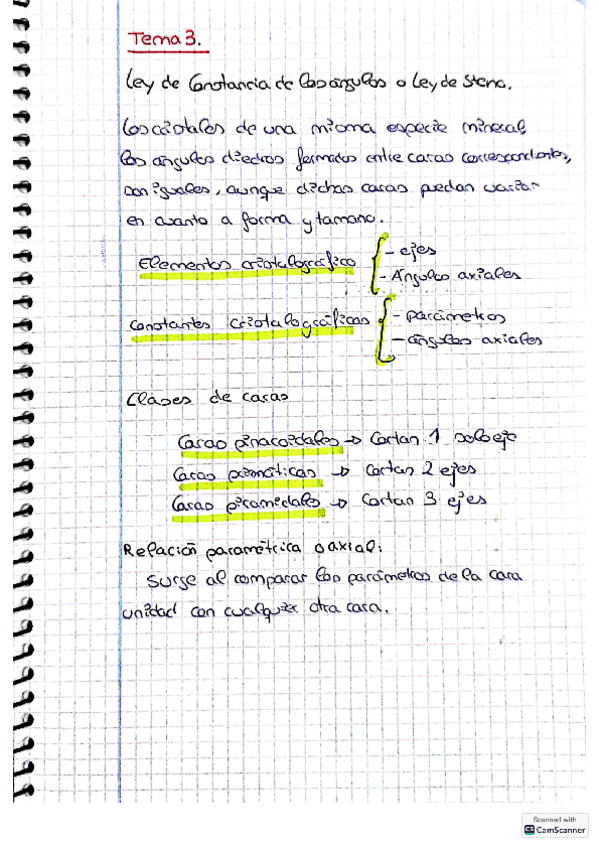 Tema 3.
Ley de Constancia de los ángulos o Ley de Steno.
Los cristales de una misma especie mineral,
los ángulos diedros formados entre caras correspondientes,
son iguales, aunque dichas caras puedan variar
en cuanto a forma y tamaño.
Elementos cristalográfico { - ejes
- Ángulos axiales
Constantes cristalográficas { - parámetros
- ángulos axiales
Clases de caras
Caras pinacoidales → Cortan 1 solo eje
Caras prismáticas → Cortan 2 ejes
Caras piramidales → Cortan 3 ejes
Relación paramétrica o axial:
Surge al comparar los parámetros de la cara
unidad con cualquier otra cara.
Scanned with
CS CamScanner